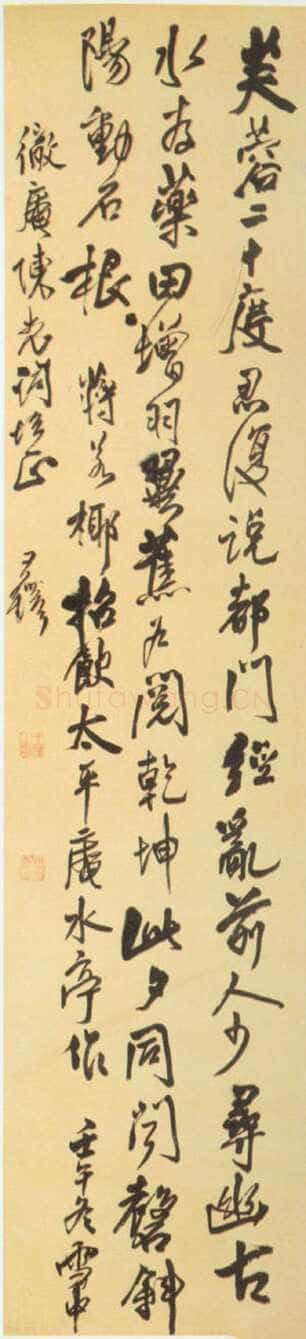 芙蓉二十度忍復說都門經亂前人少尋幽古
水存藥田增羽翼蕉閱乾坤此夕同聞磬斜
陽動石根 蔣若椰招飲太平庵水亭作 壬午冬雪中
庵陳老詞壇正 王鐸
Shufawang.CN